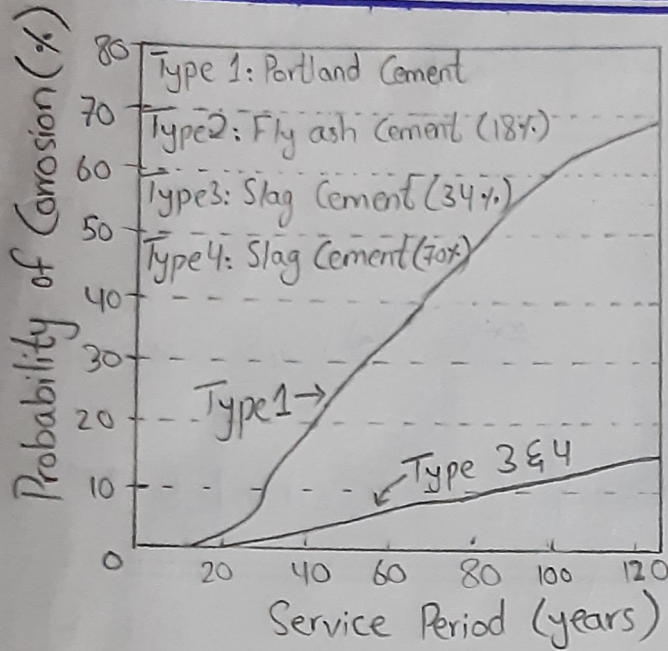 Probability of Corrosion (%)
80
70
60
50
40
30
20
10
0
Type 1: Portland Cement
Type2: Fly ash Cement (18%)
Type3: Slag Cement (34%)
Type4: Slag Cement (70%)
Type1→
Type 3&4
20 40 60 80 100 120
Service Period (years)